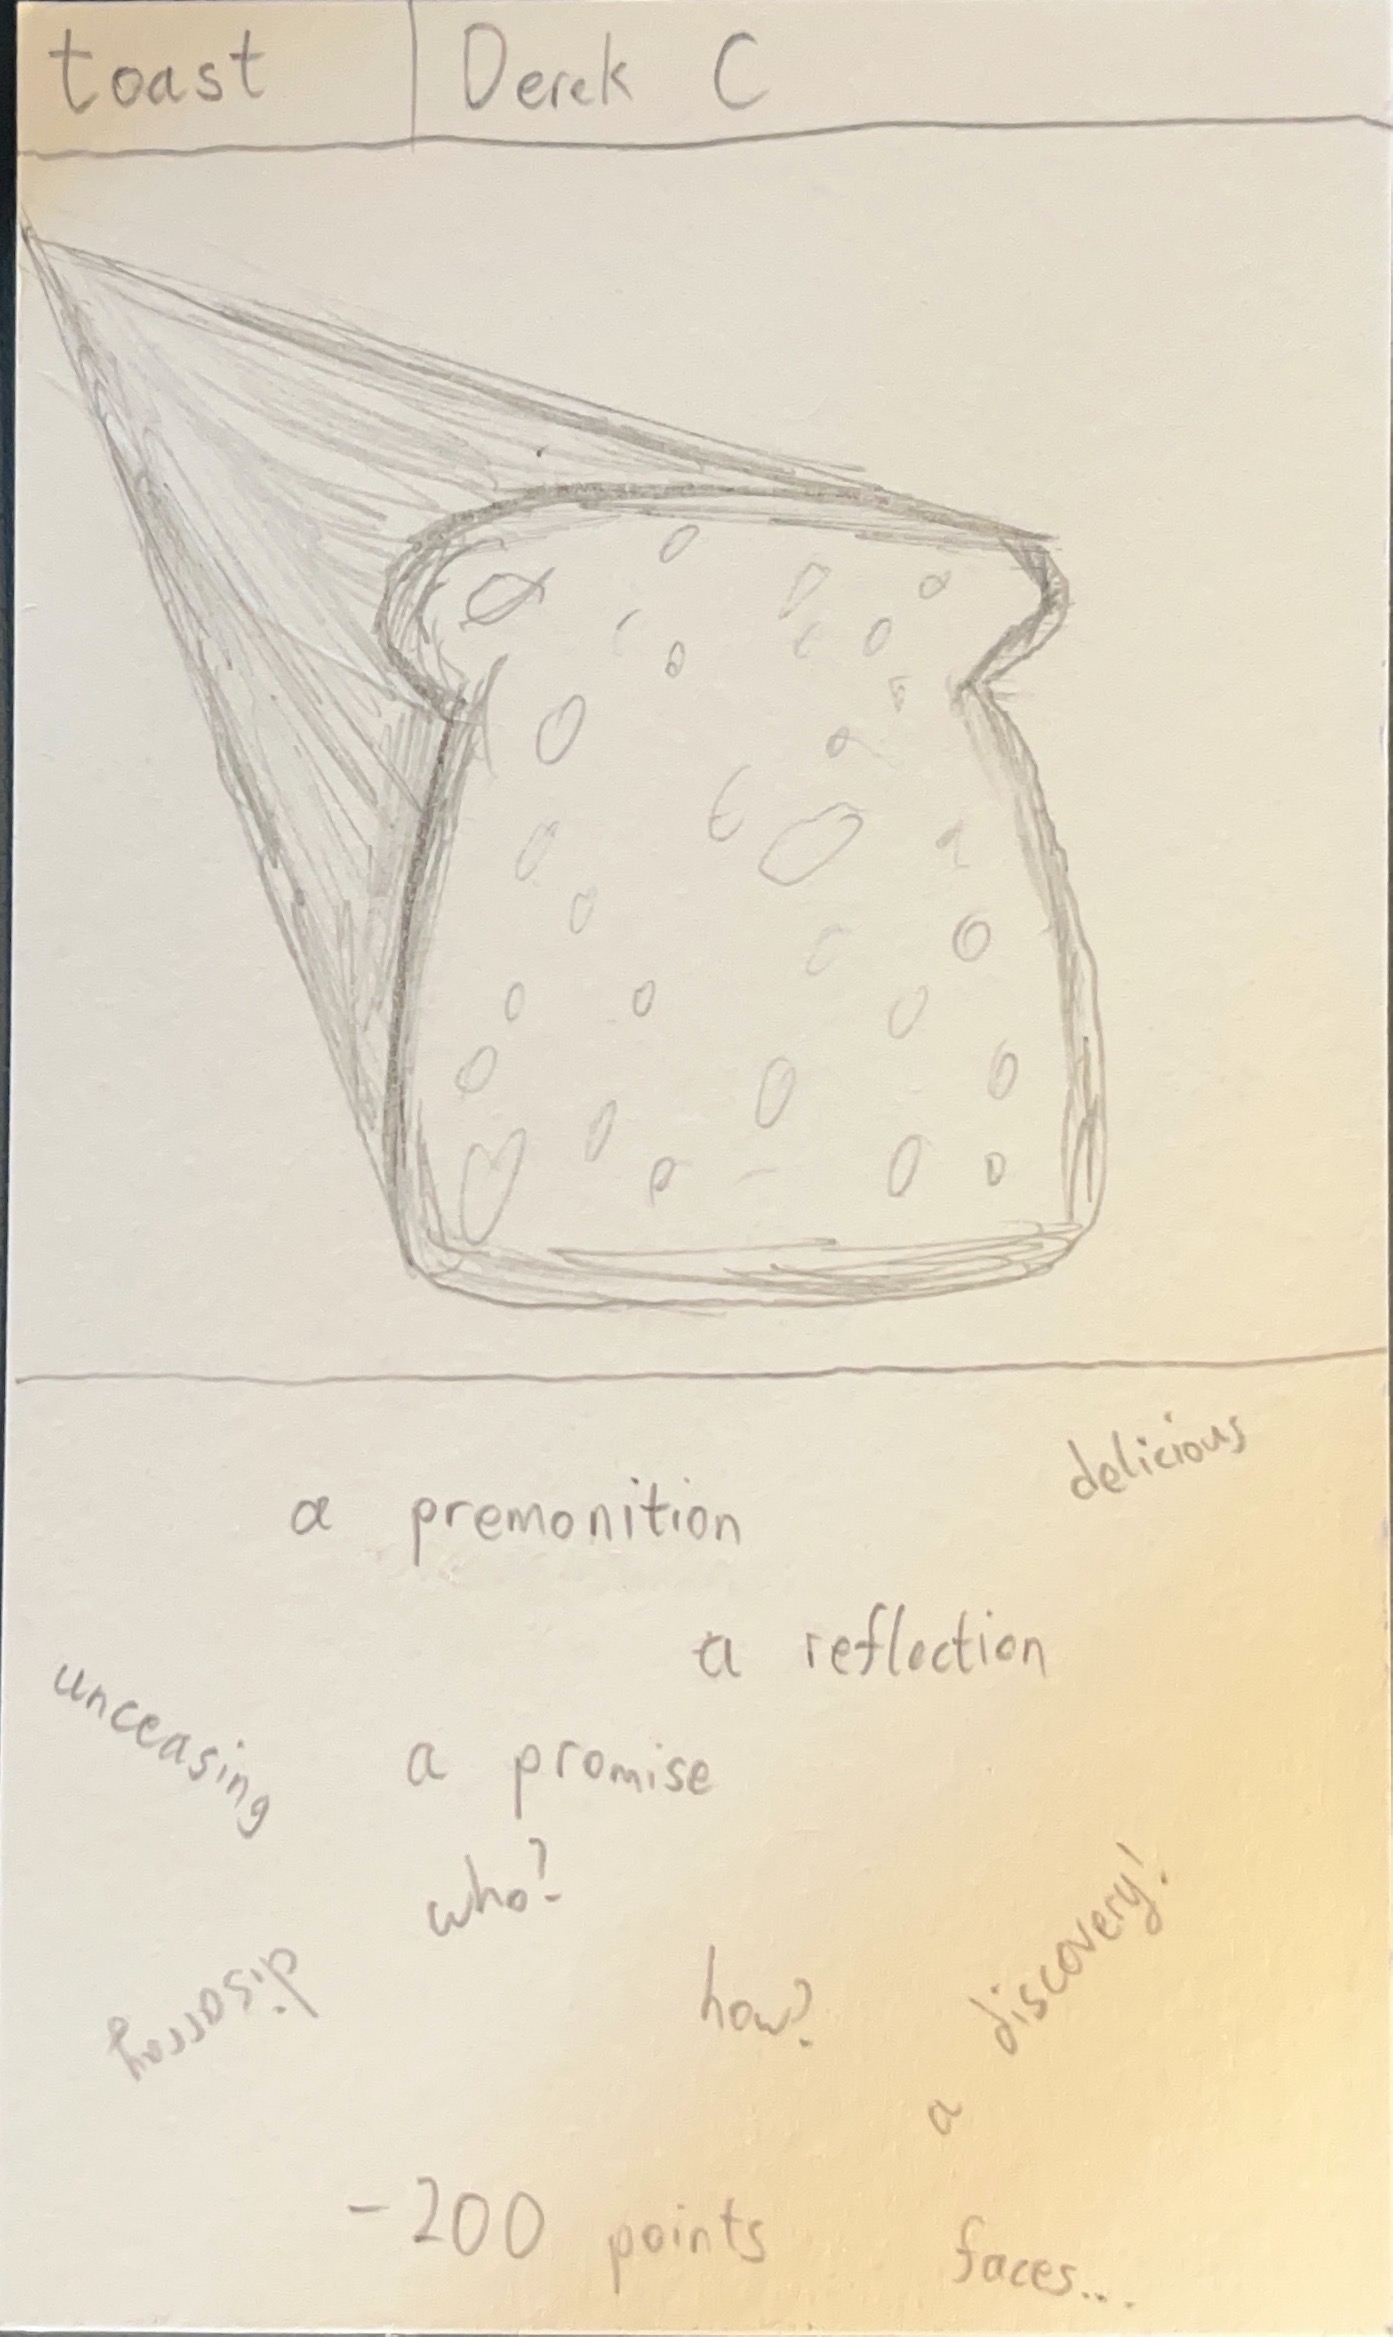 toast
Derek C
delicious
a premonition
a reflection
unceasing
a promise
who?
a discovery!
disarray
how?
-200 points
faces...